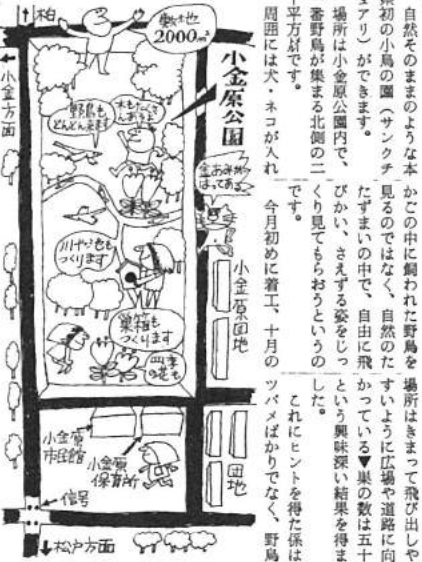 自然そのままのような本
県初の小鳥の園（サンクチ
ュアリ）ができます。
場所は小金原公園内で、
一番野鳥が集まる北側の二
平方㍍です。
周囲には犬・ネコが入れ
かごの中に飼われた野鳥を
見るのではなく、自然のた
たずまいの中で、自由に飛
びかい、さえずる姿をじっ
くり見てもらおうというの
です。
今月初めに着工、十月の
場所はきまって飛び出しや
すいように広場や道路に向
かっている▼巣の数は五十
という興味深い結果を得ま
した。
これにヒントを得た係は
ツバメばかりでなく、野鳥
↑柏
敷地
2000m²
小金原公園
←小金方面
野鳥も
どんどん来ます
木もたくさん
あるよ
金あみが
はってある
川や池も
つくります
巣箱も
つくります
四季
の花も
小金原団地
小金原
市民館
小金原
保育所
団地
←信号
↓松戸方面